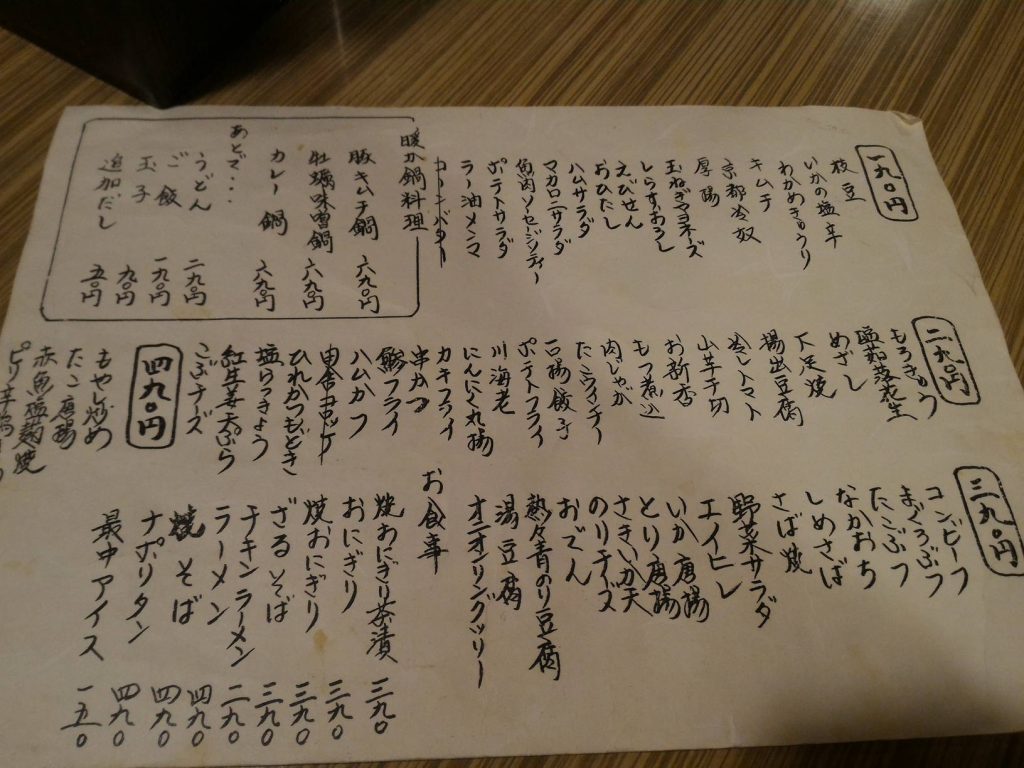 一九〇円
枝豆
いかの塩辛
わかめきゅうり
キムチ
京都冷奴
厚揚
玉ねぎマヨネーズ
しらすおろし
えびせん
おひたし
ハムサラダ
マカロニサラダ
魚肉ソーセージソティー
ポテトサラダ
ラー油メンマ
コーンバター
暖か鍋料理
豚キムチ鍋 六九〇円
牡蠣味噌鍋 六九〇円
カレー鍋 六九〇円
あとで・・
うどん 二九〇円
ご飯 一九〇円
玉子 九〇円
追加だし 五〇円
二九〇円
もろきゅう
塩茹落花生
めざし
下足焼
揚出豆腐
冷しトマト
山芋千切
お新香
もつ煮込
肉じゃが
たこウインナー
一口揚餃子
ポテトフライ
川海老
にんにく丸揚
カキフライ
串かつ
鯵フライ
ハムカツ
田舎コロッケ
ひれかつもどき
塩らっきょう
紅生姜天ぷら
こぶチーズ
四九〇円
もやし炒め
たこ唐揚
赤魚塩麹焼
三九〇円
コンビーフ
まぐろぶつ
たこぶつ
なかおち
しめさば
さば焼
野菜サラダ
エイヒレ
いか唐揚
とり唐揚
さきいか天
のりチーズ
おでん
熱々青のり豆腐
湯豆腐
オニオリングツリー
お食事
焼おにぎり茶漬 三九〇
おにぎり 二九〇
焼おにぎり 三九〇
ざるそば 三九〇
チキンラーメン 二九〇
ラーメン 四九〇
焼そば 四九〇
ナポリタン 四九〇
最中アイス 一五〇